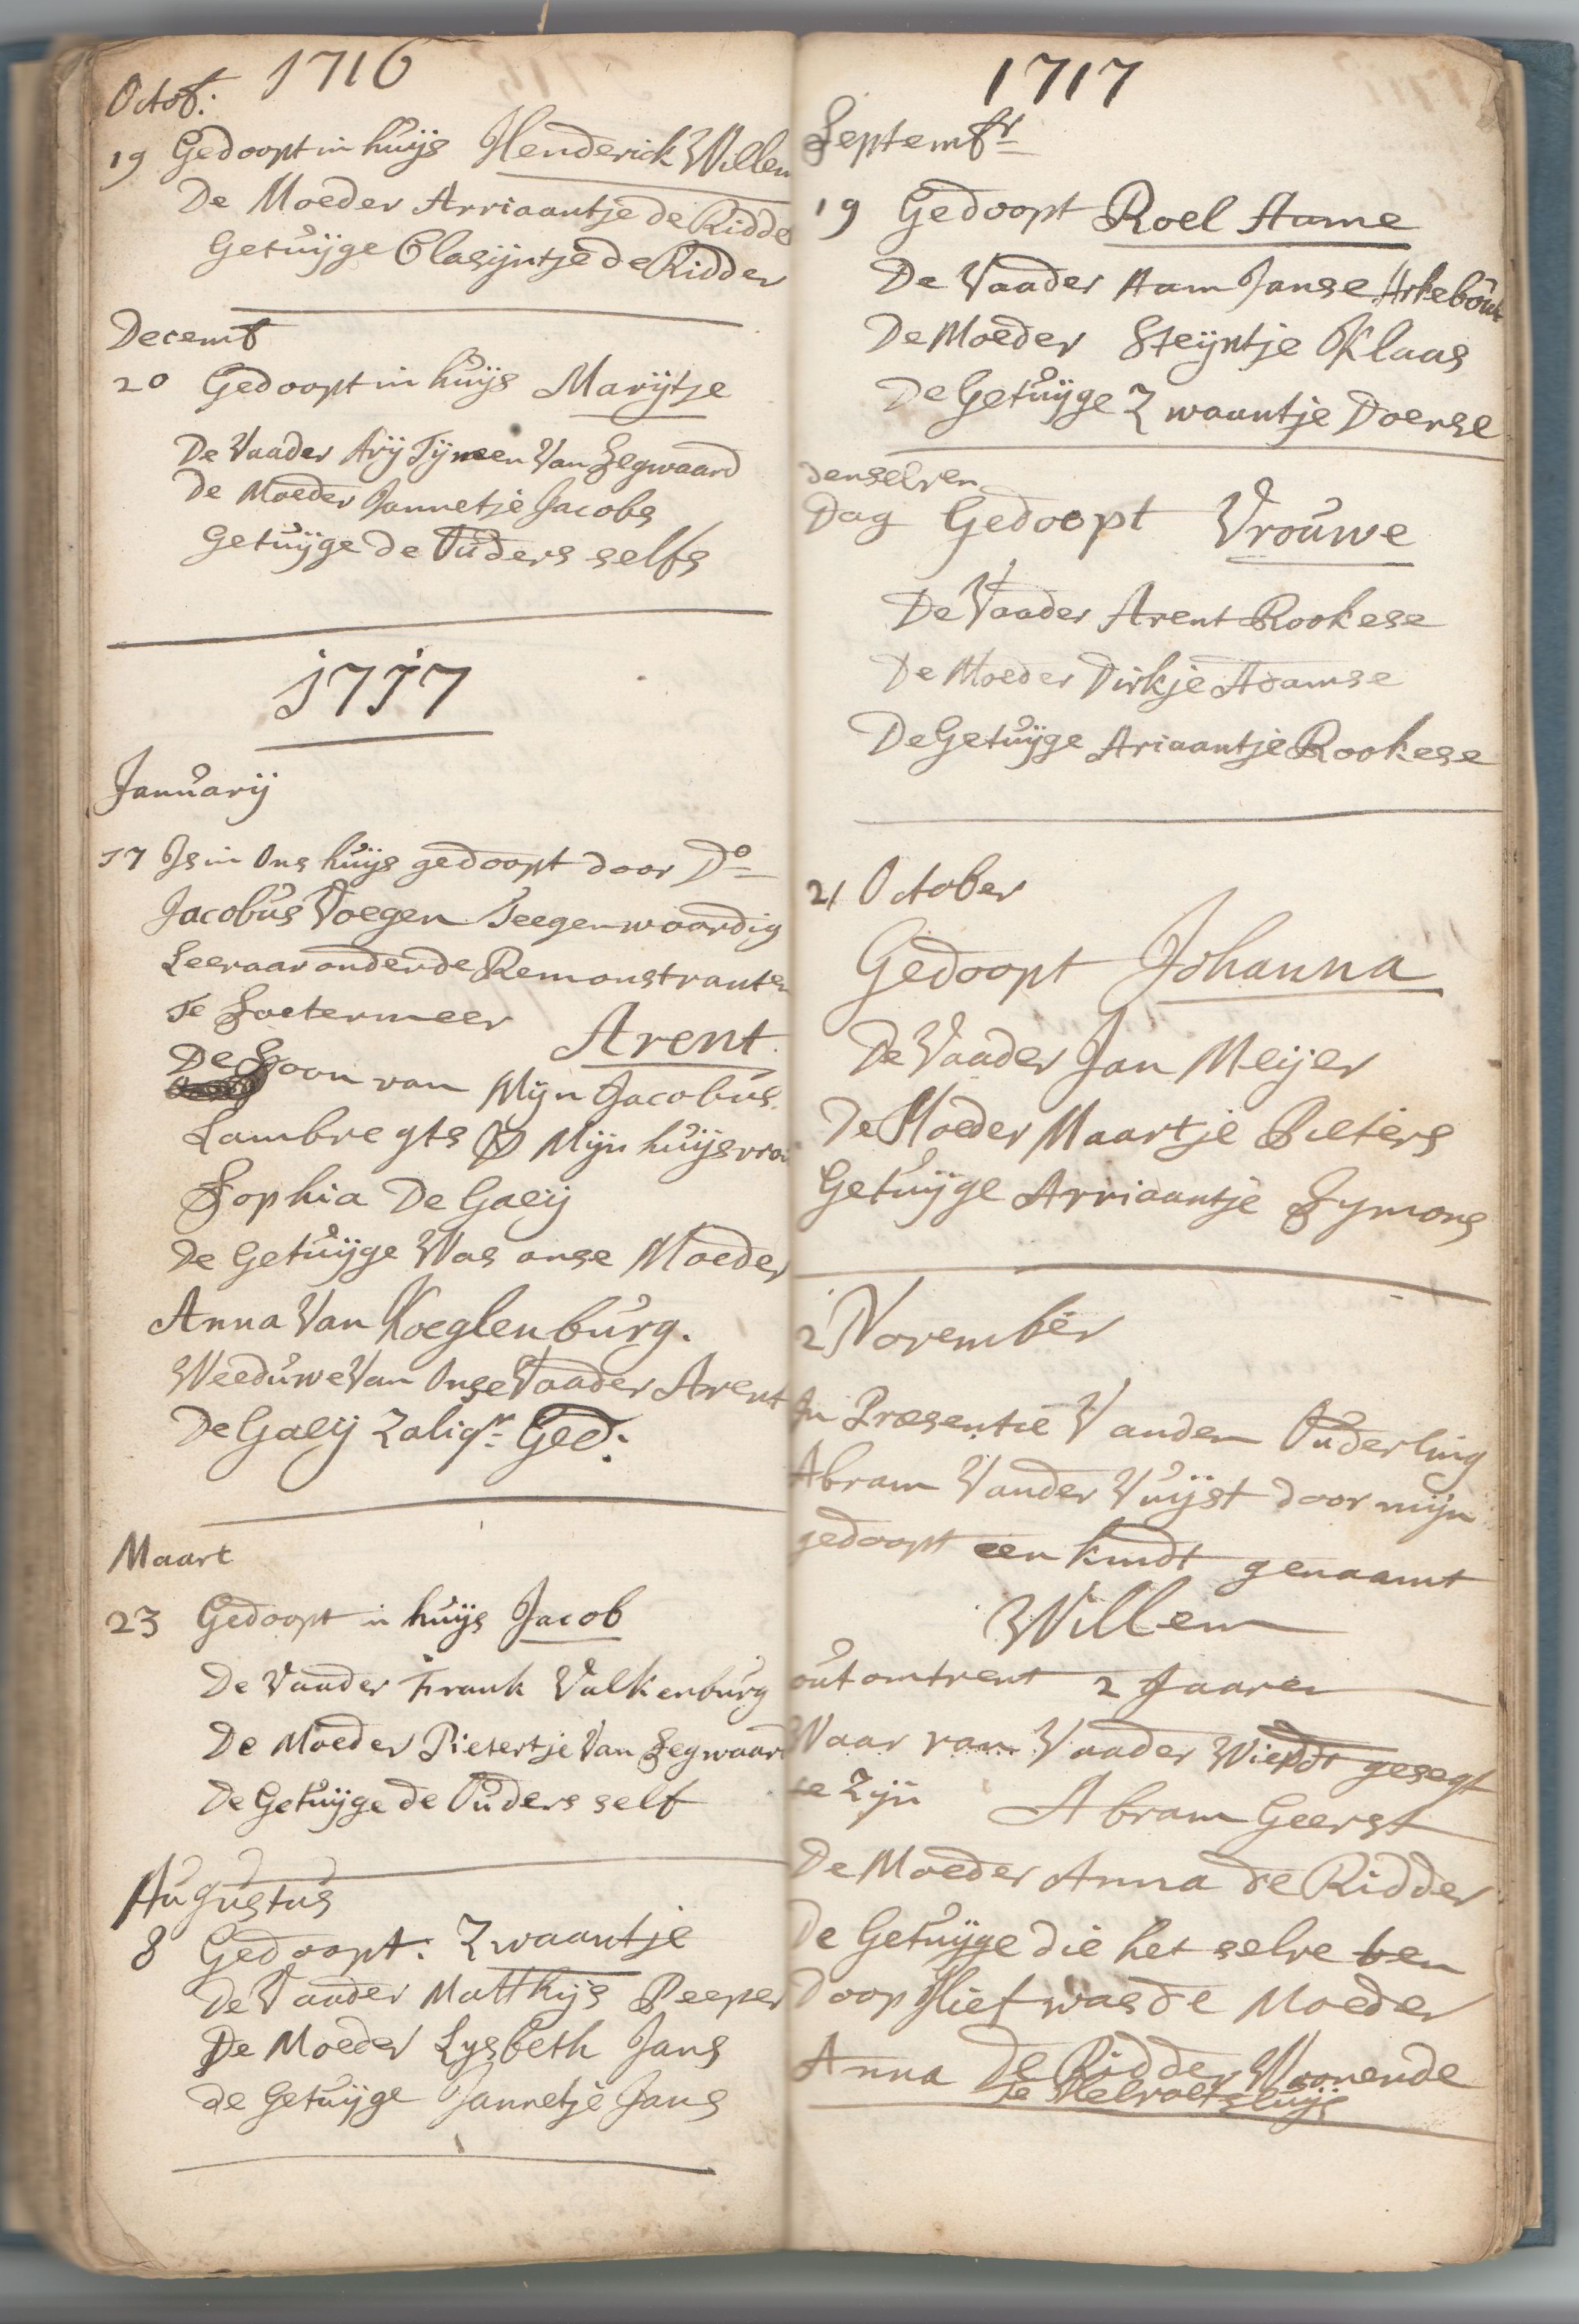 1716
Octob:
19 Gedoopt in huijs Henderick Willem
De Moeder Arriaantje de Ridder
Getuijge Clasijntje de Ridder
Decemb
20 Gedoopt in huijs Marijtje
De Vaader Arij Tijmeen Van Segwaard
De Moeder Jannetje Jacobs
Getuijge de Ouders selfs
1717
Januarij
17 Is in Ons huijs gedoopt door Do
Jacobus Voegen Teegenwoordig
Leeraar onder de Remonstranten
Te Soetermeer Arent
De Soon van Mijn Jacobus
Lambregts & Mijn huijsvrou
Sophia De Gaeij
De Getuijge Was onse Moeder
Anna Van Koeglenburg.
Weeduwe Van Onse Vaader Arent
De Gaeij Zaligr Ged:
Maart
23 Gedoopt in huijs Jacob
De Vaader Frank Valkenburg
De Moeder Pietertje Van Segwaard
De Getuijge de Ouders self
Augustus
8 Gedoopt: Zwaantje
De Vaader Matthijs Peeper
De Moeder Lysbeth Jans
de Getuijge Jannetje Jans
1717
Septembr
19 Gedoopt Roel Aame
De Vaader Aam Janse Arkebout
De Moeder Steijntje Klaas
De Getuijge Zwaantje Doense
denselven
Dag Gedoopt Vrouwe
De Vaader Arent Rookese
De Moeder Dirkje Adamse
De Getuijge Ariaantje Rookese
21 October
Gedoopt Johanna
De Vaader Jan Meijer
De Moeder Maartje Pieters
Getuijge Arriaantje Symons
2 November
In Præsentie Vanden Ouderling
Abram Vander Vuijst door mijn
gedoopt een kindt genaamt
Willem
out omtrent 2 Jaaren
Waar van Vaader Wierdt gesegt
te Zijn Abram Geerst
De Moeder Anna de Ridder
De Getuijge die het selve ten
Doop Hief was de Moeder
Anna De Ridder Woonende
Te Helvoetsluijs